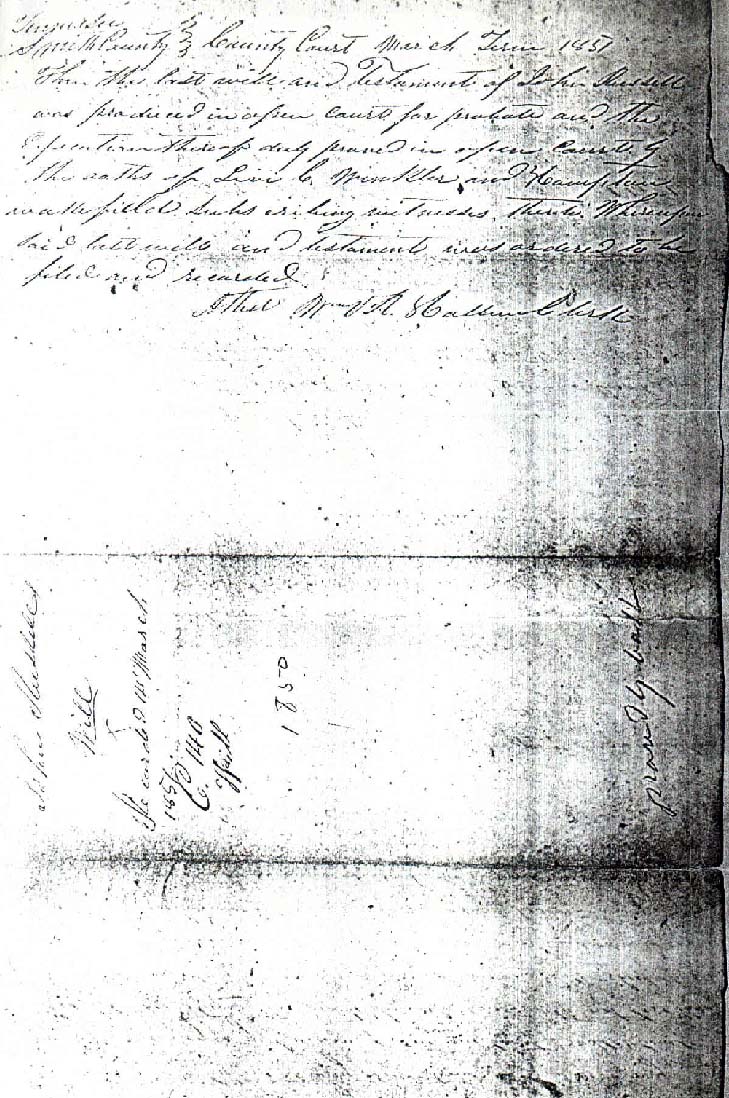 Tennessee
Smith County } County Court March Term 1851
Then this last will and Testament of John Russell
was produced in open court for probate and the
Execution thereof duly proved in open court by
the oaths of Levi C. Winkler and Hampton
wakefield subscribing witnesses thereto Whereupon
said last will and testament was ordered to be
filed and recorded
Attest Wm V R Hallum Clerk
John Russells
Will
Recorded 14 March
1851
C. 140
1850
proved by both